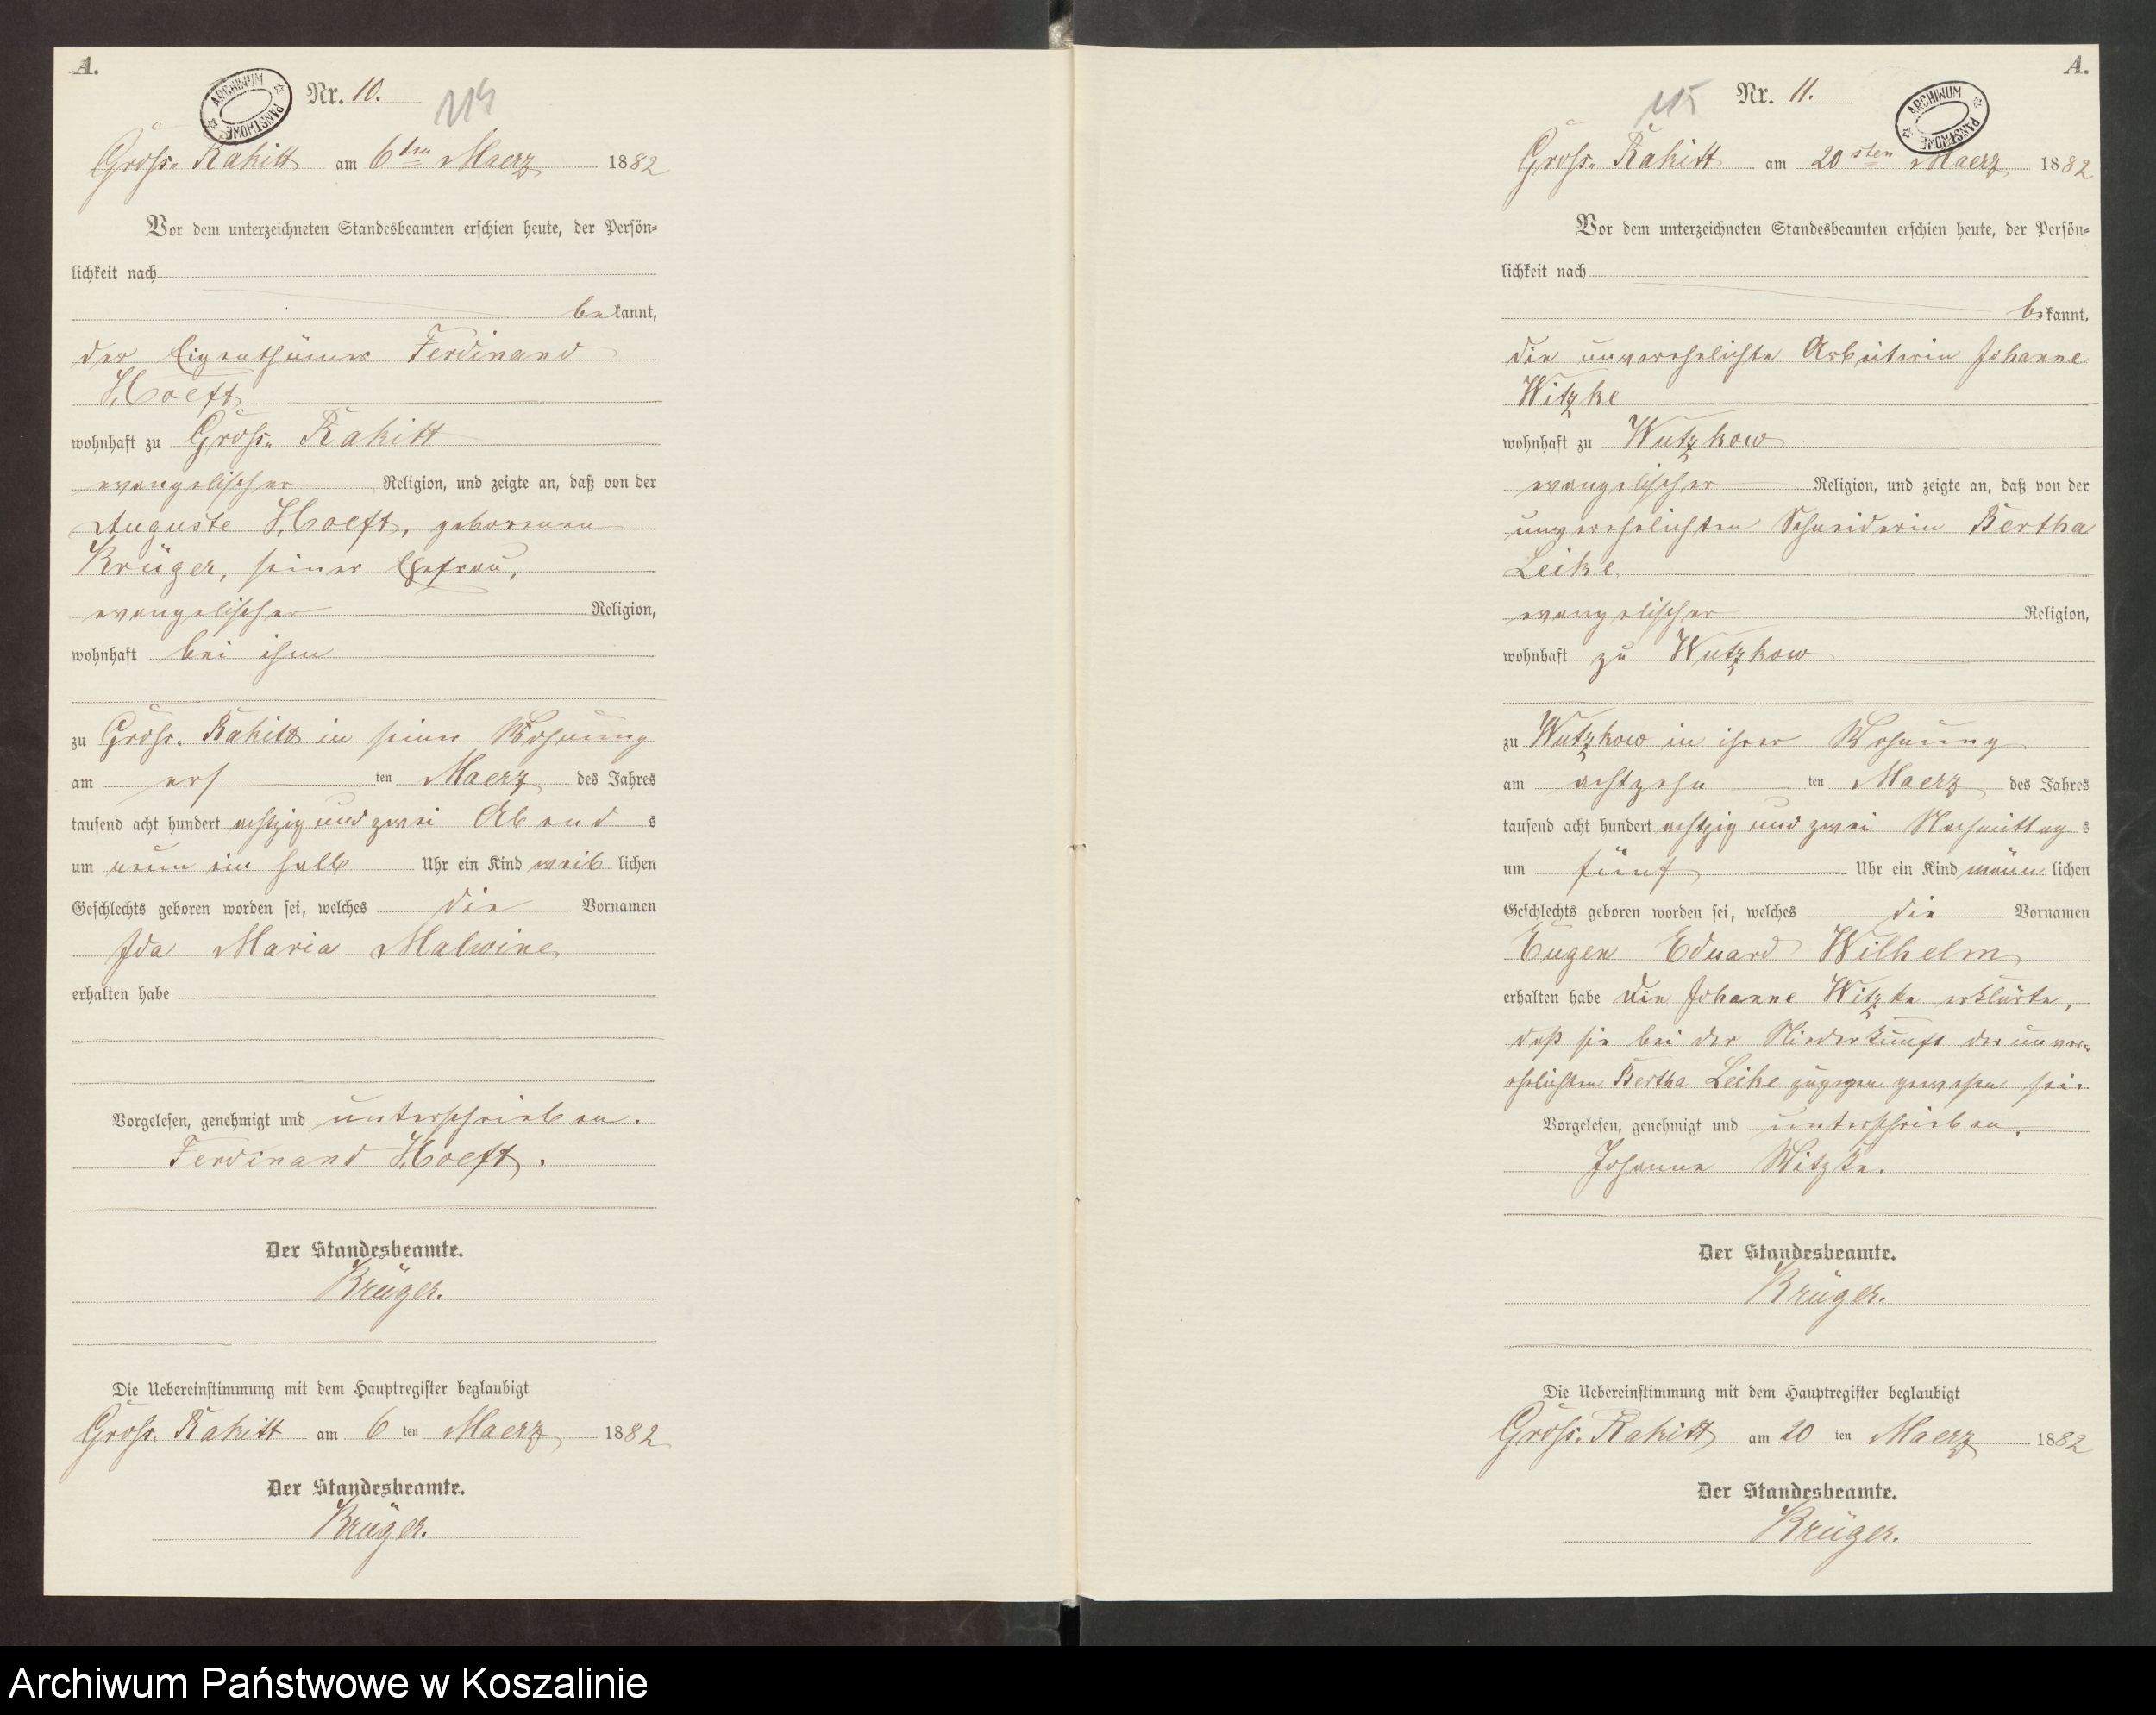 A.
ARCHIWUM PAŃSTWOWE
Nr. 10.
114
Gross-Rakitt am 6ten Maerz 1882
Vor dem unterzeichneten Standesbeamten erschien heute, der Persön-
lichkeit nach
bekannt,
der Eigenthümer Ferdinand
Hoeft
wohnhaft zu Gross-Rakitt
evangelischer Religion, und zeigte an, daß von der
Auguste Hoeft, geborenen
Krüger, seiner Ehefrau,
evangelischer Religion,
wohnhaft bei ihm
zu Gross-Rakitt in seiner Wohnung
am ersten Maerz des Jahres
tausend acht hundert achtzig und zwei Abends
um neun ein halb Uhr ein Kind weiblichen
Geschlechts geboren worden sei, welches die Vornamen
Ida Maria Malwine
erhalten habe
Vorgelesen, genehmigt und unterschrieben.
Ferdinand Hoeft.
Der Standesbeamte.
Krüger.
Die Uebereinstimmung mit dem Hauptregister beglaubigt
Gross-Rakitt am 6ten Maerz 1882
Der Standesbeamte.
Krüger.
A.
115
Nr. 11.
ARCHIWUM PAŃSTWOWE
Gross-Rakitt am 20sten Maerz 1882
Vor dem unterzeichneten Standesbeamten erschien heute, der Persön-
lichkeit nach
bekannt,
die unverehelichte Arbeiterin Johanne
Witzke
wohnhaft zu Wutzkow
evangelischer Religion, und zeigte an, daß von der
unverehelichten Schneiderin Bertha
Leike
evangelischer Religion,
wohnhaft zu Wutzkow
zu Wutzkow in ihrer Wohnung
am achtzehnten Maerz des Jahres
tausend acht hundert achtzig und zwei Nachmittags
um fünf Uhr ein Kind männlichen
Geschlechts geboren worden sei, welches die Vornamen
Eugen Eduard Wilhelm
erhalten habe Die Johanne Witzke erklärte,
daß sie bei der Niederkunft der unver-
ehelichten Bertha Leike zugegen gewesen sei.
Vorgelesen, genehmigt und unterschrieben.
Johanne Witzke.
Der Standesbeamte.
Krüger.
Die Uebereinstimmung mit dem Hauptregister beglaubigt
Gross-Rakitt am 20ten Maerz 1882
Der Standesbeamte.
Krüger.
Archiwum Państwowe w Koszalinie